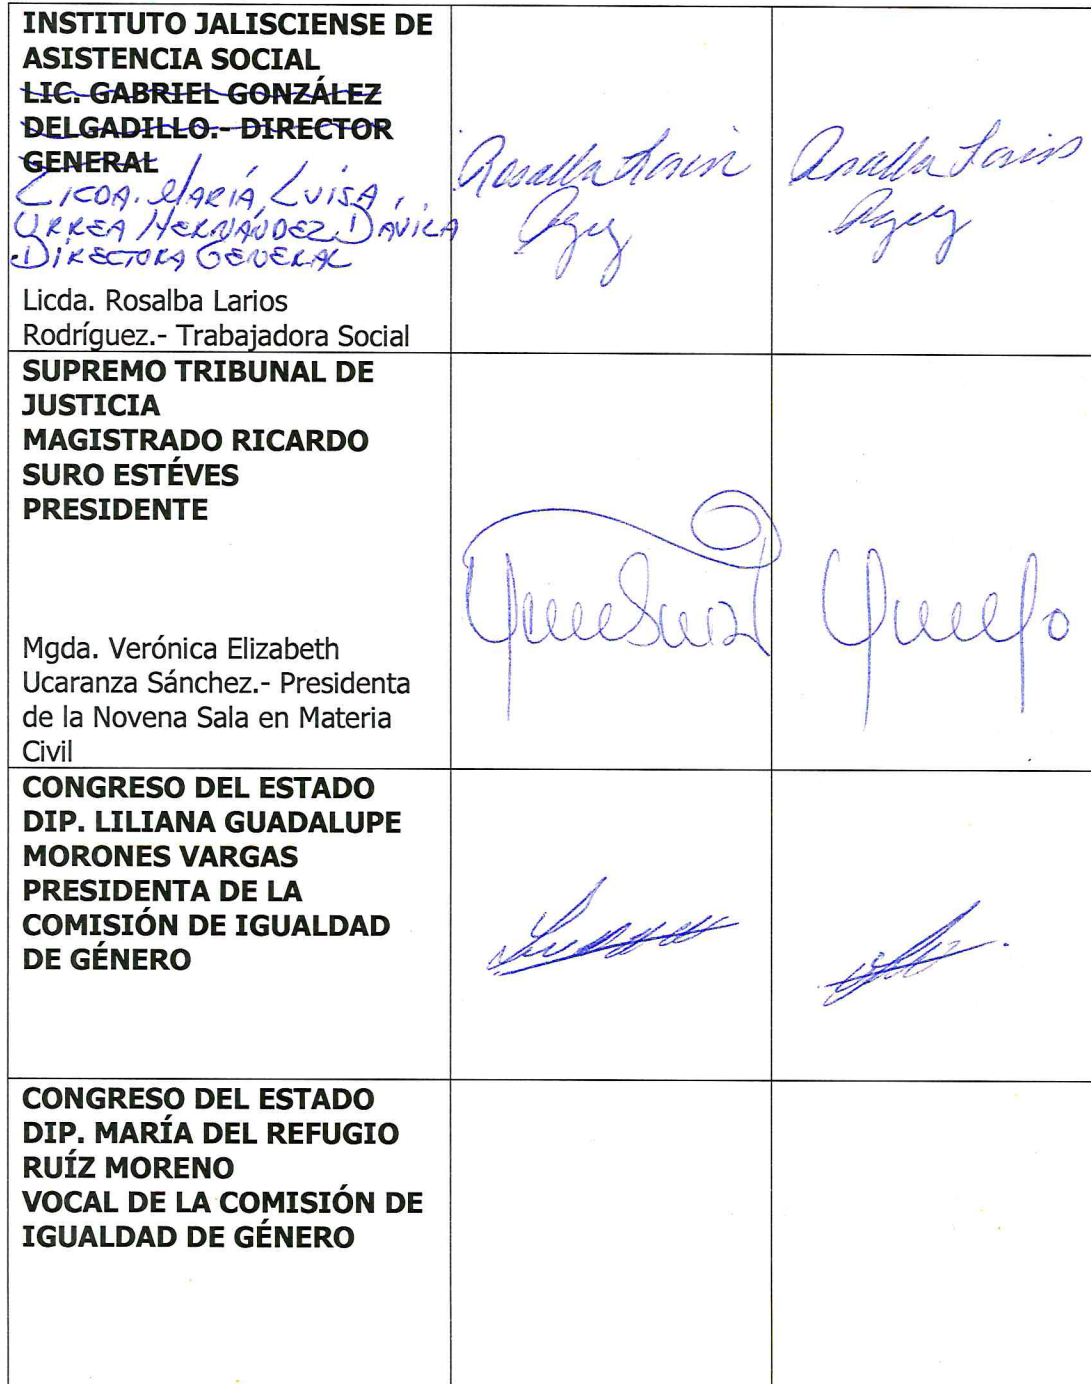 INSTITUTO JALISCIENSE DE
ASISTENCIA SOCIAL
LIC. GABRIEL GONZÁLEZ
DELGADILLO.- DIRECTOR
GENERAL
LICDA. MARÍA LUISA
URREA HERNÁNDEZ DAVILA
DIRECTORA GENERAL
Licda. Rosalba Larios
Rodríguez.- Trabajadora Social
SUPREMO TRIBUNAL DE
JUSTICIA
MAGISTRADO RICARDO
SURO ESTÉVES
PRESIDENTE
Mgda. Verónica Elizabeth
Ucaranza Sánchez.- Presidenta
de la Novena Sala en Materia
Civil
CONGRESO DEL ESTADO
DIP. LILIANA GUADALUPE
MORONES VARGAS
PRESIDENTA DE LA
COMISIÓN DE IGUALDAD
DE GÉNERO
CONGRESO DEL ESTADO
DIP. MARÍA DEL REFUGIO
RUÍZ MORENO
VOCAL DE LA COMISIÓN DE
IGUALDAD DE GÉNERO